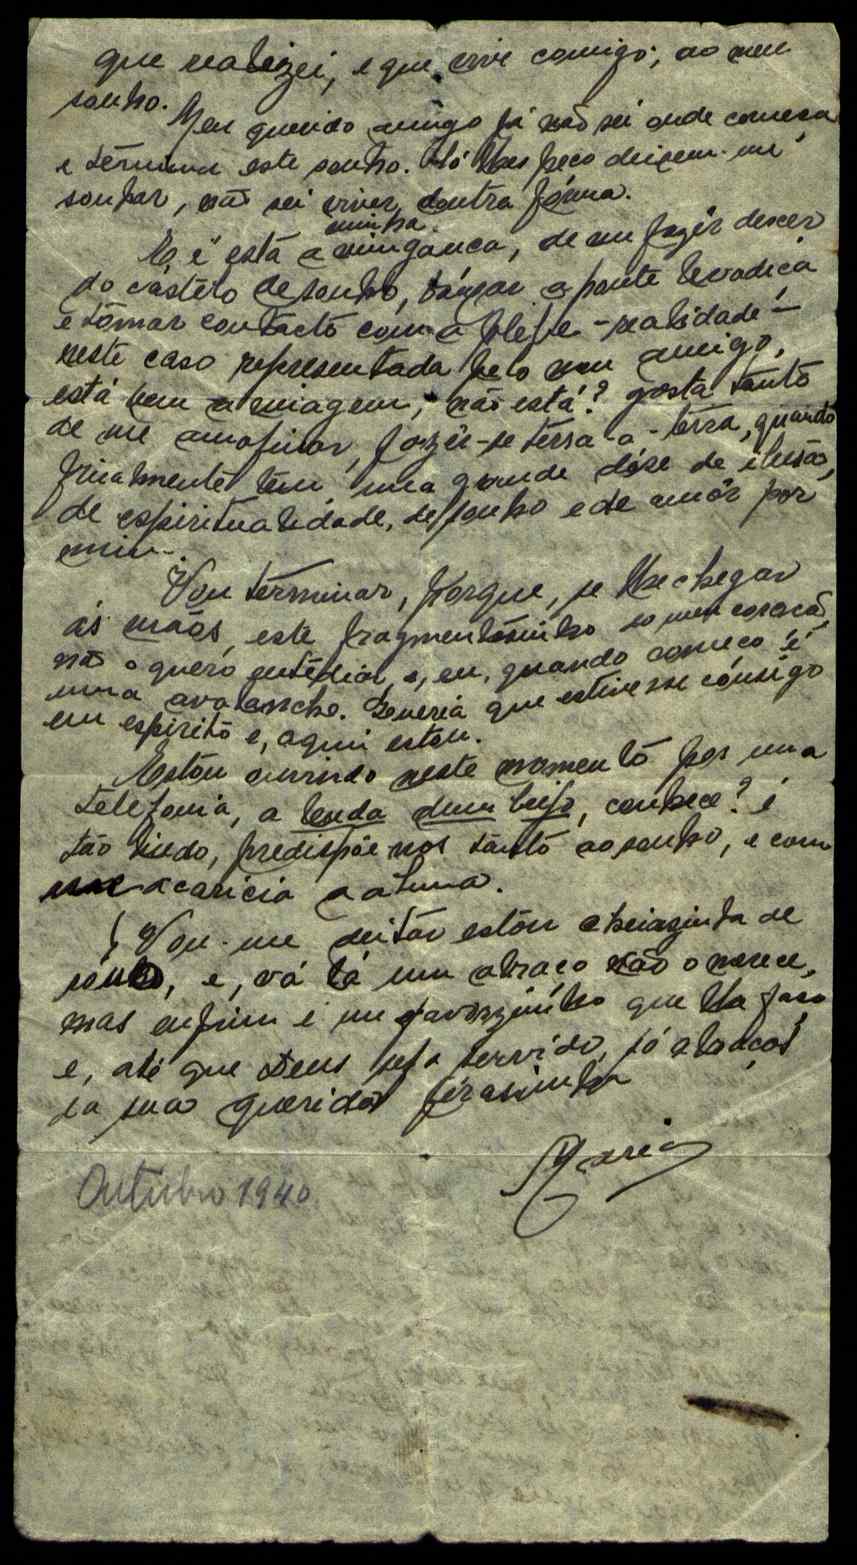 que realizei, e que vive comigo; ao meu
sonho.
Meu querido amigo já não sei onde começa
e termina este sonho. Só lhes peço deixem-me
sonhar, não sei viver doutra fórma.
E é está a minha vingança, de me fazer descer
do castelo de sonho, a ponte levadiça
e tomar contacto com a plebe - realidade -
neste caso representada pelo meu amigo,
está bem a imagem, não está? gosta tanto
de me amofinar, fazer-se terra-a-terra, quando
finalmente tem uma grande dóse de ilusão,
de espiritualidade, de sonho e de amôr por
mim.
Vou terminar, porque, se lhe chegar
ás mãos, este fragmentosinho do meu coração,
não o quero entediar, e, eu, quando começo é
uma avalanche. Queria que estivesse consigo
em espirito e, aqui estou.
Estou ouvindo neste momento por uma
telefonia, a lenda dum beijo, conhece? é
tão lindo, predispõe-nos tanto ao sonho, e como
acaricia a alma.
Vou-me deitar estou cheiazinha de
sonho, e, vá lá um abraço não o merece,
mas enfim é um favorzinho que lhe faço
e, até que Deus seja servido, só abraços
da sua querida
Maria
Outubro 1940